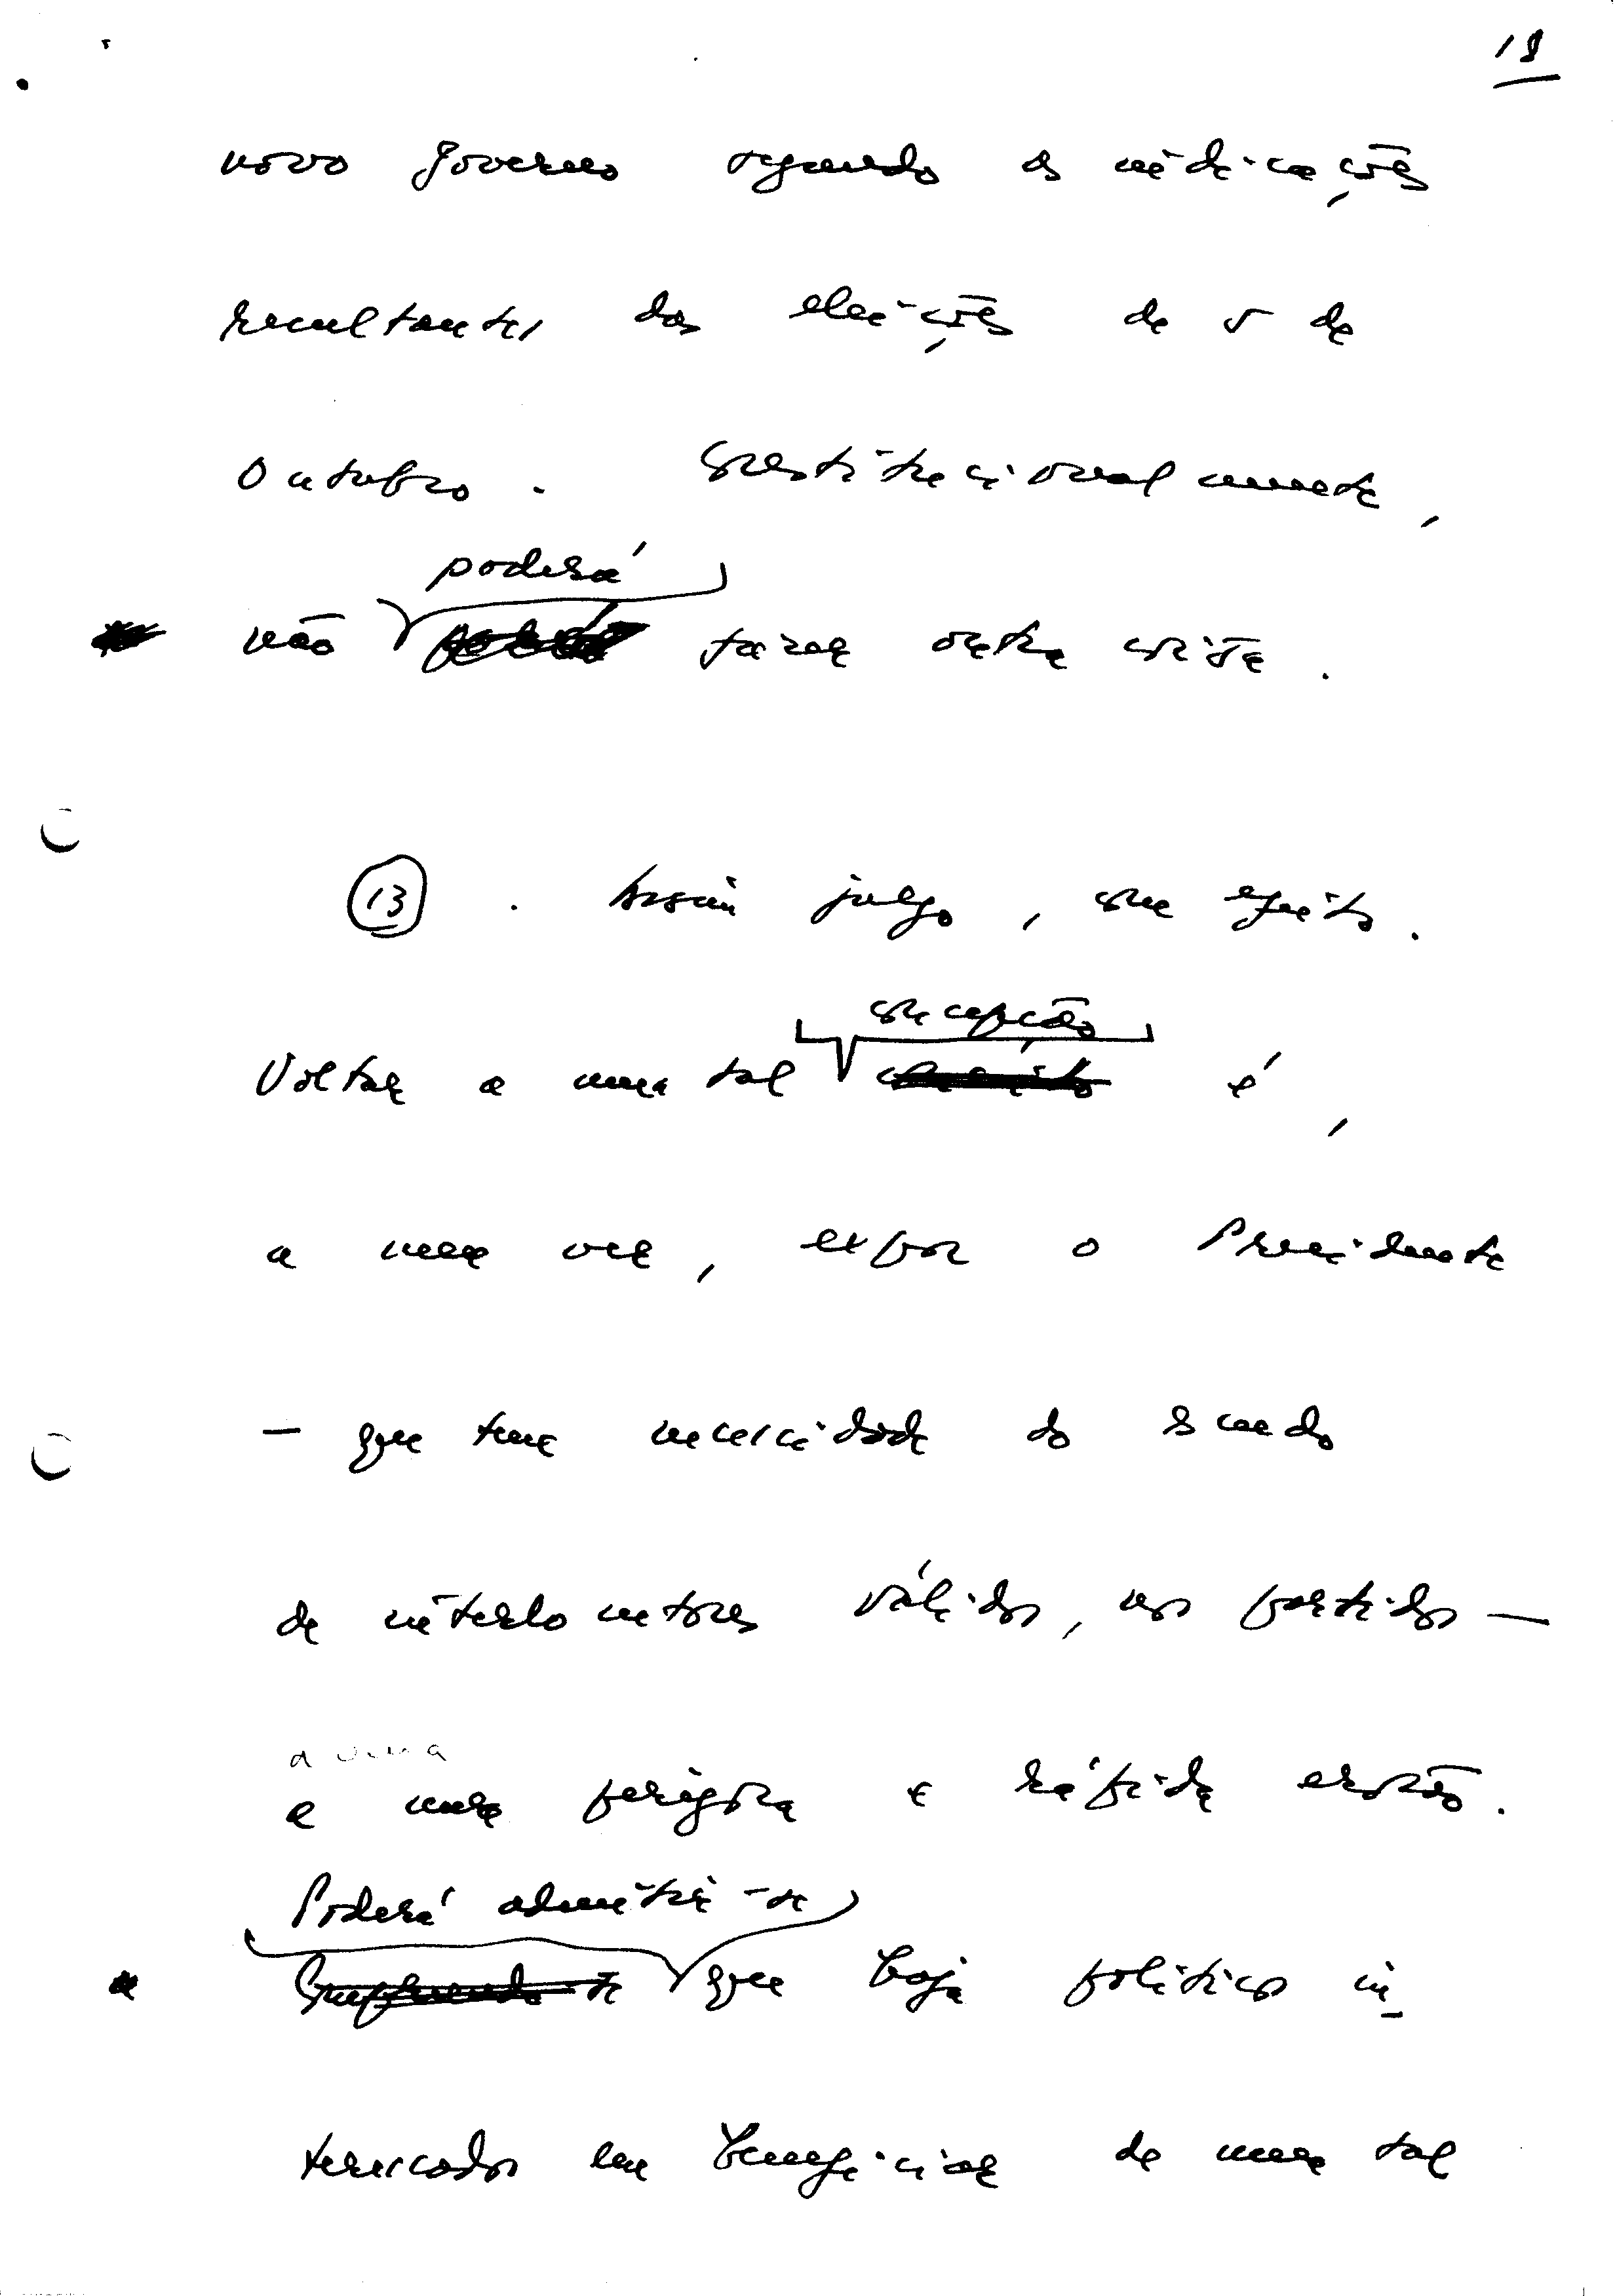 18
novo Governo segundo as indicações
resultantes das eleições de 5 de
Outubro. Constitucionalmente,
poderá
não fazer outra coisa.
13. Assim julgo, com efeito.
concepção
Voltar a uma tal é,
a meu ver, expor o Presidente
— que tem necessidade do
de interlocutores válidos, nos partidos —
a uma
a uma perigosa e rápida erosão.
Poderá admitir-se
que haja políticos in-
teressados em beneficiar de uma tal